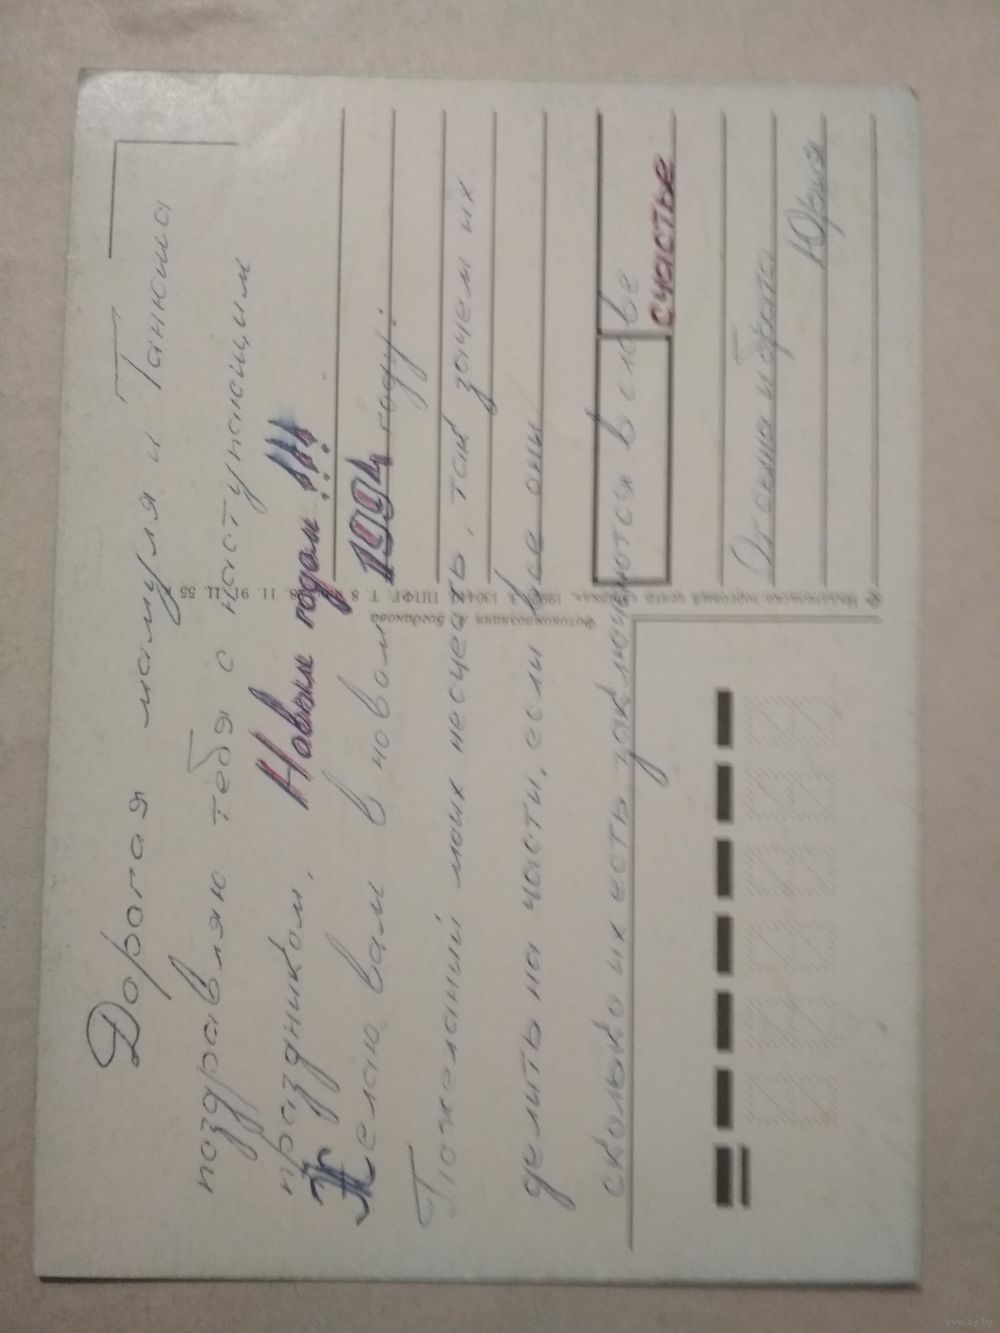 Дорогая мамуля и Танюша
поздравляю тебя с наступающим
праздником, Новым годом!!!
Желаю вам в новом 1994 году:
Пожеланий моих несчесть, так зачем их
делить на части, если все они
сколько их есть заключаются в слове
счастье
От сына и брата
Юрия
Фотокомпозиция А. Богданова
© Издательско-торговый центр «Марка»,
www.ay.by